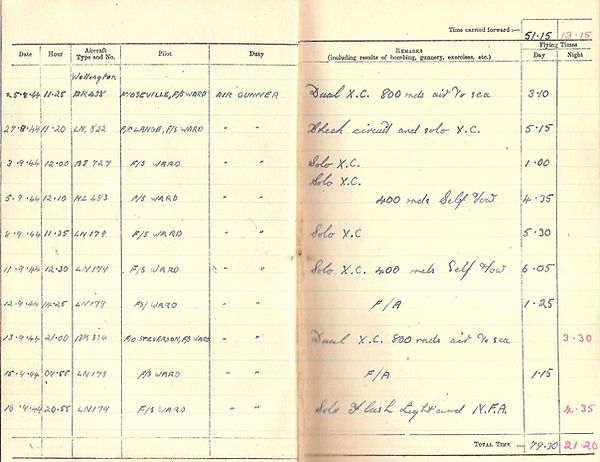 Time carried forward :— 51.15 13.15
Date Hour Aircraft Type and No. Pilot Duty REMARKS (including results of bombing, gunnery, exercises, etc.) Flying Times Day Night
Wellington
25.8.44 11.25 BK498 F/S WARD AIR GUNNER Dual X.C. 800 rnds air to sea 3.10
27.8.44 11.20 LN.522 F/S WARD " " Check circuit and solo X.C. 5.15
3.9.44 12.00 BJ 727 F/S WARD " " Solo X.C. 1.00
Solo X.C.
5.9.44 12.10 483 F/S WARD " " 400 rnds Self Tow 4.35
8.9.44 11.35 LN179 F/S WARD " " Solo X.C 5.30
11.9.44 12.30 LN179 F/S WARD " " Solo X.C. 400 rnds Self Tow 6.05
12.9.44 14.25 LN179 FS/ WARD " " F/A 1.25
13.9.44 21.00 BK334 F/O STEVERSON, F/S WARD " " Dual X.C. 800 rnds air to sea 3.30
15.9.44 09.55 LN178 F/S WARD " " F/A 1.15
16.9.44 20.55 LN179 F/S WARD " " Solo Flash Light and N.F.A. 4.35
TOTAL TIME ... 79.30 21.20